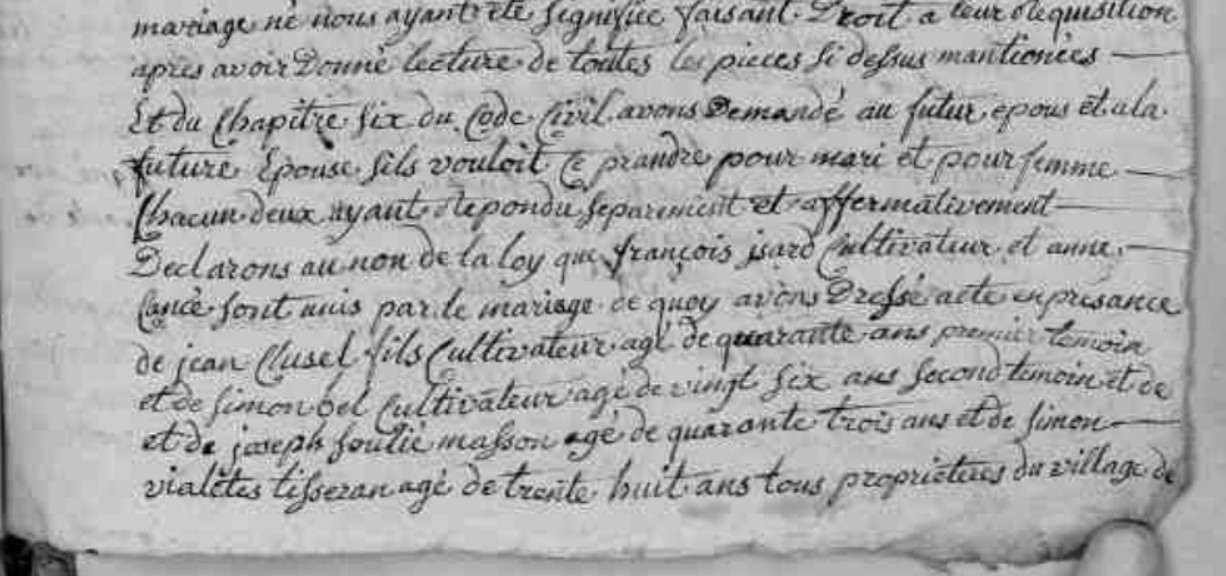 mariage ne nous ayant été signifiée faisant Droit a leur Requisition
apres avoir Donné lecture de toutes les pieces si dessus mantionées
Et du Chapitre six du Code Civil avons Demandé au futur epous et a la
future Epouse sils vouloit Ce prandre pour mari et pour femme
Chacun deux ayant Repondu separement et affermativement
Declarons au non de la loy que françois isard Cultivateur et anne
sont unis par le mariage de quoy avons Dressé acte en presance
de jean Clusel fils Cultivateur agé de quarante ans premier temoin
et de simon bel Cultivateur agé de vingt six ans second temoin et de
et de joseph soulié masson agé de quarante trois ans et de simon
vialètes tisseran agé de trente huit ans tous proprietères du village de